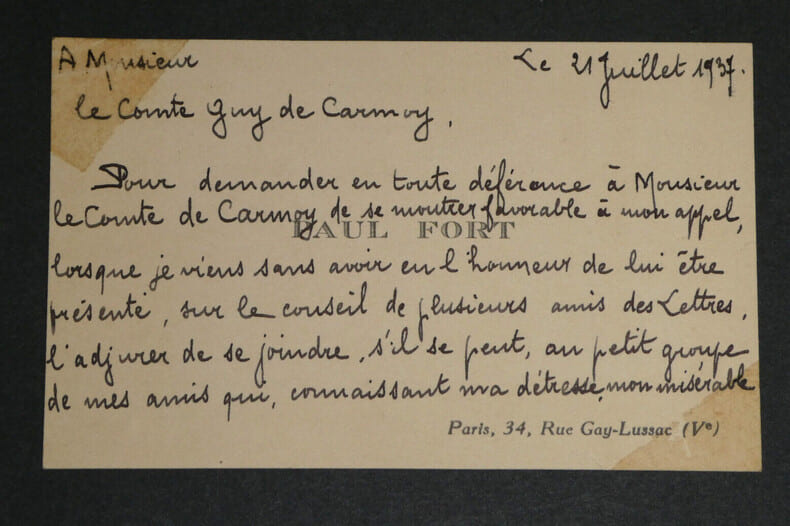 A Monsieur
Le 21 Juillet 1937.
le Comte Guy de Carmoy,
Pour demander en toute déférence à Monsieur
le Comte de Carmoy de se montrer favorable à mon appel,
PAUL FORT
lorsque je viens sans avoir eu l'honneur de lui être
présenté, sur le conseil de plusieurs amis des Lettres,
l'adjurer de se joindre, s'il se peut, au petit groupe
de mes amis qui, connaissant ma détresse, mon misérable
Paris, 34, Rue Gay-Lussac (Ve)